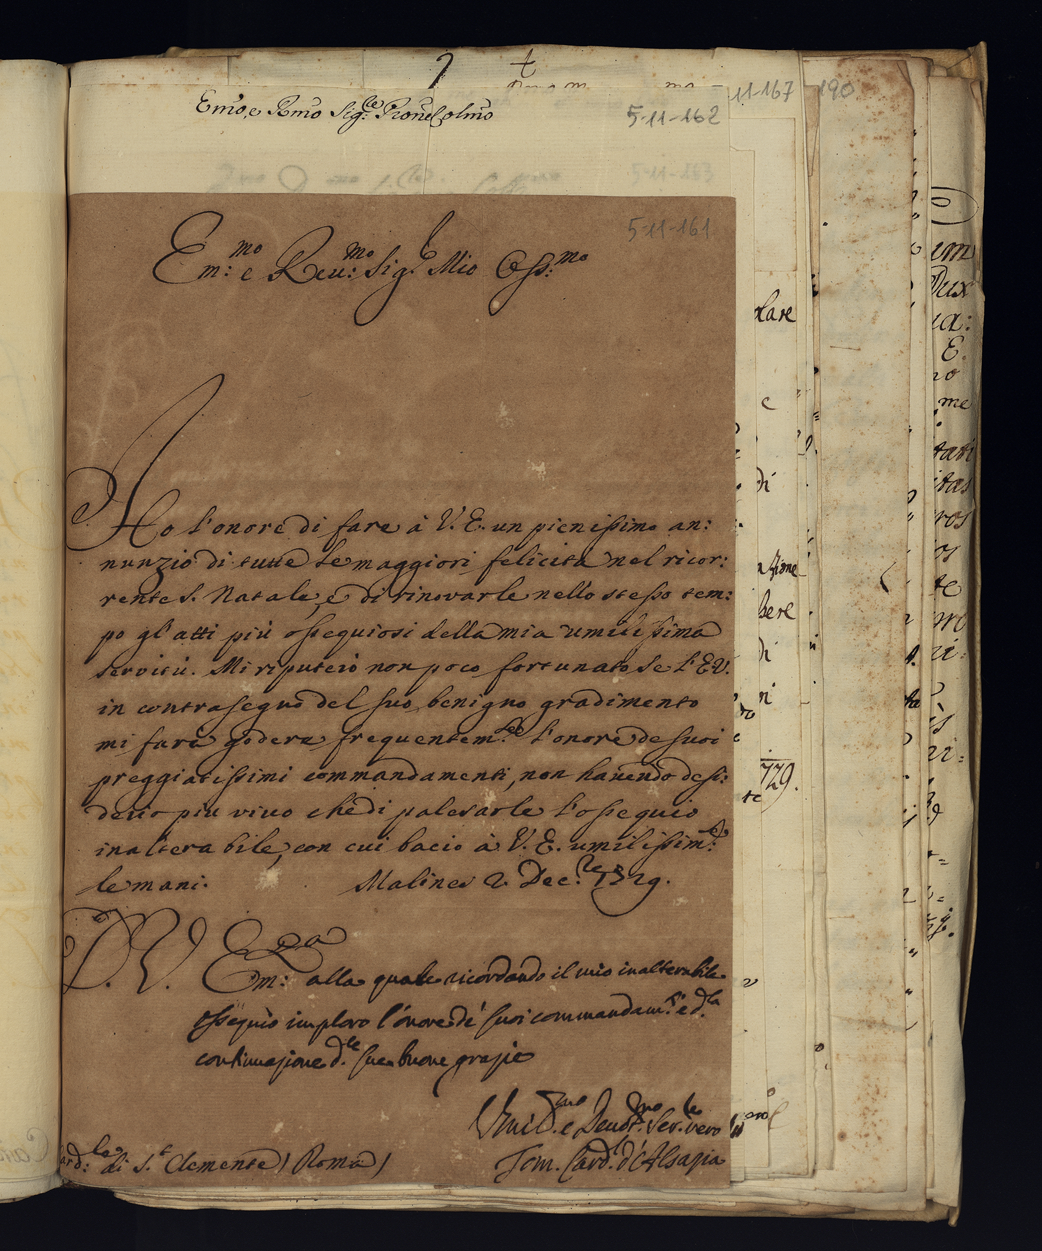 11-167 190
Em̃o, e Rmõ Sig.re Pron̄e Colm̃o
5-11-162
5-11-163
5-11-161
Em:mo e Reu:mo Sig.r Mio Oss:mo
Ho l'onore di fare à V. E. un pienissimo an:
nunzio di tutte le maggiori felicità nel ricor:
rente S. Natale, e di rinovarle nello stesso tem:
po gl'atti più ossequiosi della mia umilissima
servitù. Mi riputerò non poco fortunato se l'E.V.
in contrasegno del suo benigno gradimento
mi farà godere frequentem.te l'onore de suoi
preggiatissimi commandamenti, non havendo desi:
derio piu vivo che di palesarle l'ossequio
inalterabile, con cui bacio à V. E. umilissim.e
le mani. Malines 2. Dec.re 1729.
D. V. Em:za alla quale ricordando il mio inalterabile
ossequio imploro l'onore dé suoi commandam.ti e d.la
continuazione d.le sue buone grazie
Umil.mo e Deuot.mo Ser.le vero
Tom. Card. d'Alsazia
ard:le di S.t Clemente / Roma /
lare
e
di
azione
bere
di
ni
729.
um
Dux
ia:
E.
no
me
tati
itas
ros
os
te
pro